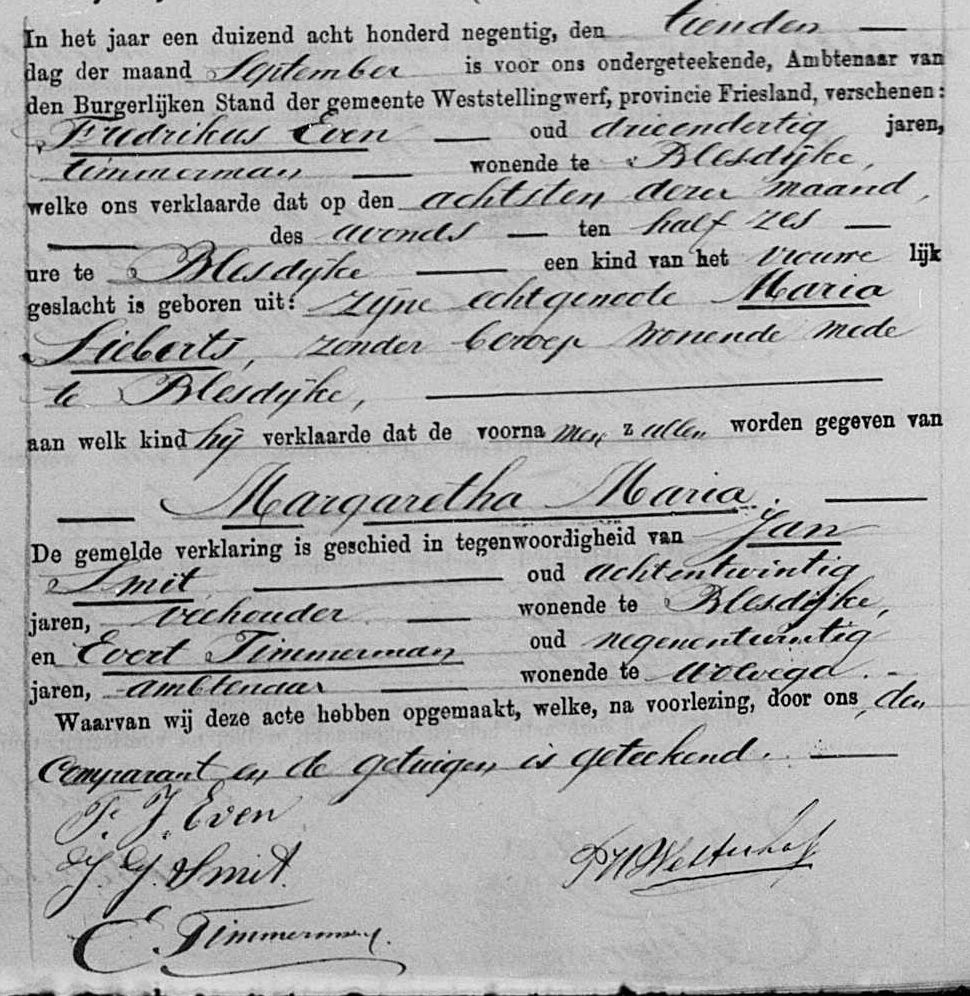 In het jaar een duizend acht honderd negentig, den tienden
dag der maand September is voor ons ondergeteekende, Ambtenaar van
den Burgerlijken Stand der gemeente Weststellingwerf, provincie Friesland, verschenen:
Fredrikus Even oud drieendertig jaren,
timmerman wonende te Blesdijke,
welke ons verklaarde dat op den achtsten dezer maand,
des avonds ten half zes
ure te Blesdijke een kind van het vrouwe lijk
geslacht is geboren uit: zijne echtgenoote Maria
Sieberts, zonder beroep wonende mede
te Blesdijke,
aan welk kind hij verklaarde dat de voorna men z ullen worden gegeven van
Margaretha Maria.
De gemelde verklaring is geschied in tegenwoordigheid van Jan
Smit oud achtentwintig
jaren, veehouder wonende te Blesdijke,
en Evert Timmerman oud negenentwintig
jaren, ambtenaar wonende te Wolvega.
Waarvan wij deze acte hebben opgemaakt, welke, na voorlezing, door ons, den
Comparant en de getuigen is geteekend.
F. J. Even
J. J. Smit.
E. Timmerman.